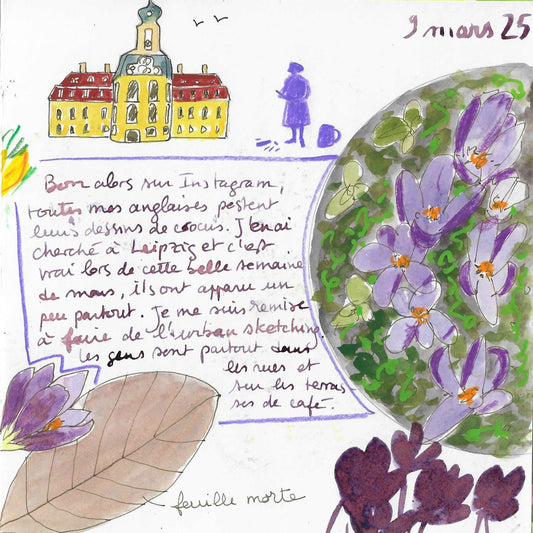 9 mars 25
Bon alors sur Instagram,
toutes mes anglaises postent
leurs dessins de crocus. J'en ai
cherché à Leipzig et c'est
vrai lors de cette belle semaine
de mars, ils ont apparu un
peu partout. Je me suis remise
à faire de l'urban sketching.
Les gens sont partout dans
les rues et
sur les terras
ses de café.
feuille morte